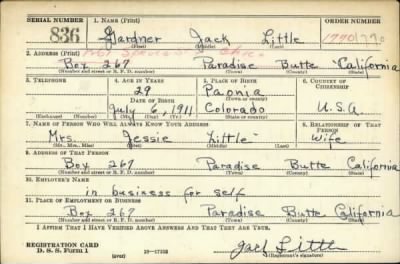 SERIAL NUMBER 1. NAME (Print) ORDER NUMBER
836 Gardner Jack Little 1790
(First) (Middle) (Last)
2. ADDRESS (Print)
Box 267 Paradise Butte California
(Number and street or R. F. D. number) (Town) (County) (State)
3. TELEPHONE 4. AGE IN YEARS 5. PLACE OF BIRTH 6. COUNTRY OF CITIZENSHIP
29 Paonia
DATE OF BIRTH (Town or county)
July 6, 1911 Colorado U.S.A
(Exchange) (Number) (Mo.) (Day) (Yr.) (State or country)
7. NAME OF PERSON WHO WILL ALWAYS KNOW YOUR ADDRESS 8. RELATIONSHIP OF THAT PERSON
Mrs. Jessie Little Wife
(Mr., Mrs., Miss) (First) (Middle) (Last)
9. ADDRESS OF THAT PERSON
Box 267 Paradise Butte California
(Number and street or R. F. D. number) (Town) (County) (State)
10. EMPLOYER'S NAME
in business for self
11. PLACE OF EMPLOYMENT OR BUSINESS
Box 267 Paradise Butte California
(Number and street or R. F. D. number) (Town) (County) (State)
I AFFIRM THAT I HAVE VERIFIED ABOVE ANSWERS AND THAT THEY ARE TRUE.
REGISTRATION CARD
D. S. S. Form 1 16-17105 Jack Little
(Registrant's signature)